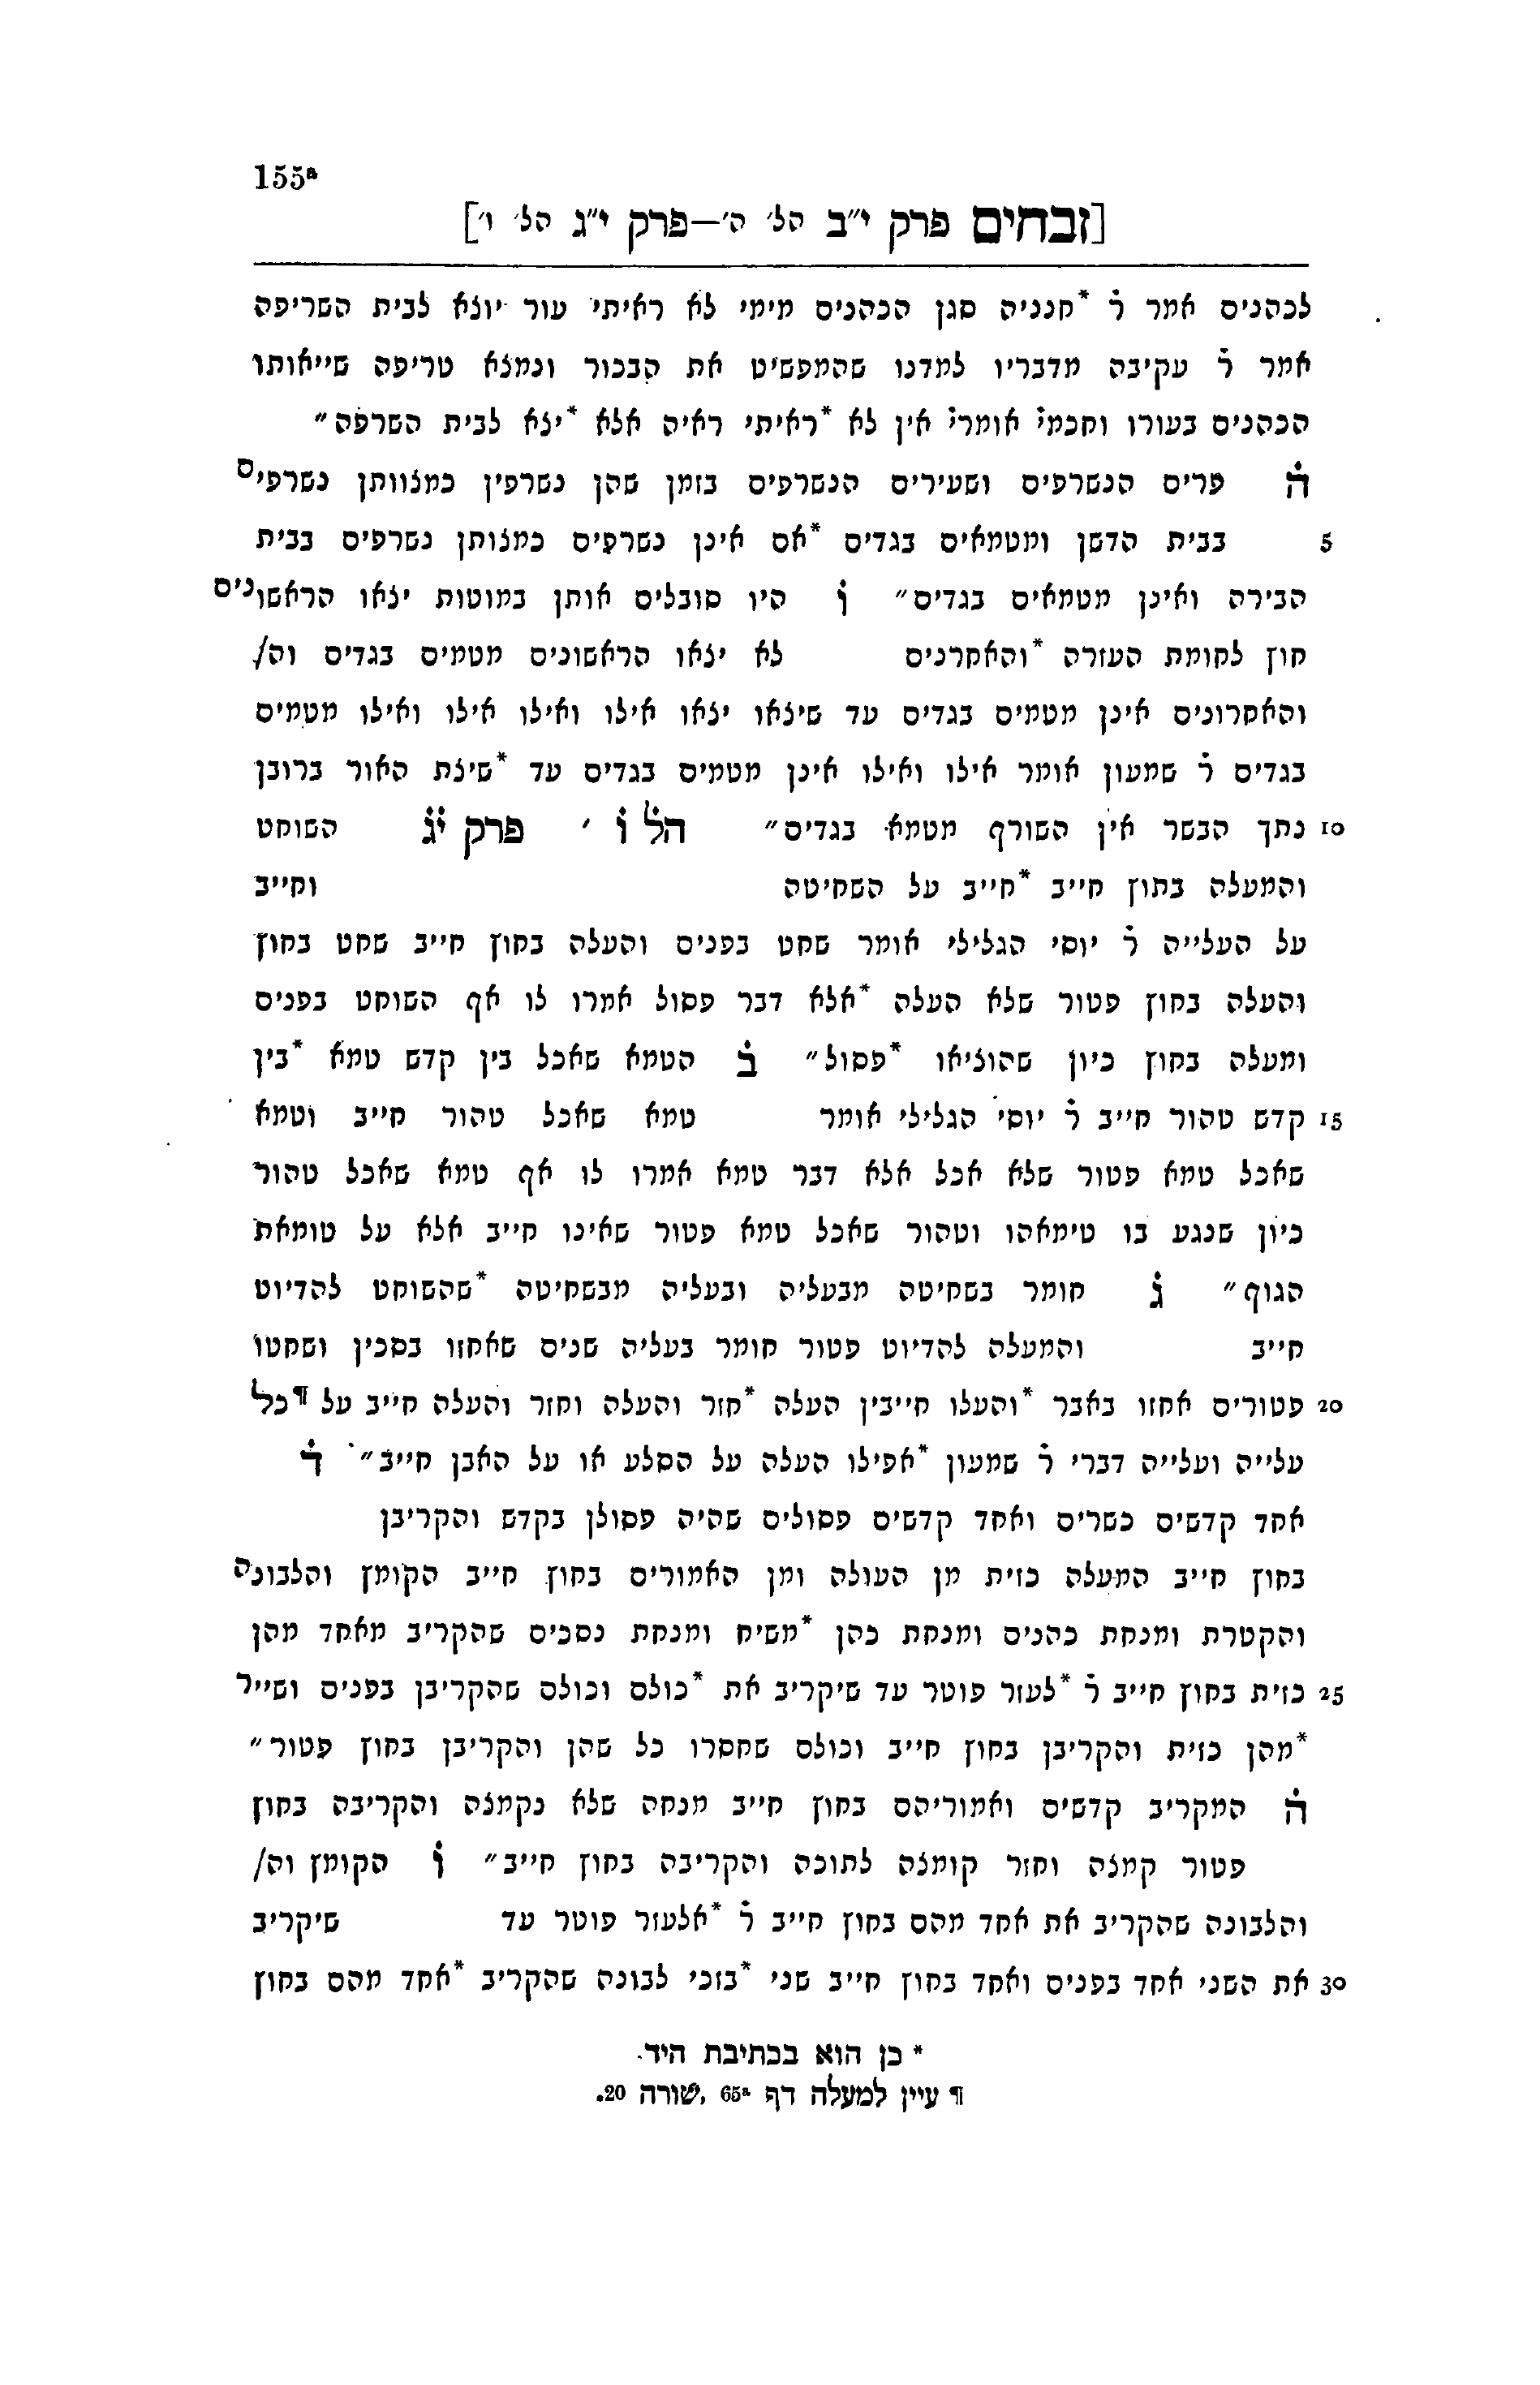 155a
[זבחים פרק י״ב הל׳ ה׳—פרק י״ג הל׳ ו׳]
לכהנים אמר ר֗ *חנניה סגן הכהנים מימי לא ראיתי עור יוצא לבית השריפה
אמר ר֗ עקיבה מדבריו למדנו שהמפשיט את הבכור ונמצא טריפה שייאותו
הכהנים בעורו וחכמי֗ אומרי֗ אין לא *ראיתי ראיה אלא *יצא לבית השרפה״
ה֗ פרים הנשרפים ושעירים הנשרפים בזמן שהן נשרפין כמצוותן נשרפים
5 בבית הדשן ומטמאים בגדים *אם אינן נשרפים כמצותן נשרפים בבית
הבירה ואינן מטמאים בגדים״ ו֗ היו סובלים אותן במוטות יצאו הראשונים
חוץ לחומת העזרה *והאחרנים לא יצאו הראשונים מטמים בגדים וה/
והאחרונים אינן מטמים בגדים עד שיצאו יצאו אילו ואילו אילו ואילו מטמים
בגדים ר֗ שמעון אומר אילו ואילו אינן מטמים בגדים עד *שיצת האור ברובן
10 נתך הבשר אין השורף מטמא בגדים״ הל֗ ו֗ ׳ פרק י֗ג֗ השוחט
והמעלה בתוץ חייב *חייב על השחיטה וחייב
על העלייה ר֗ יוסי הגלילי אומר שחט בפנים והעלה בחוץ חייב שחט בחוץ
והעלה בחוץ פטור שלא העלה *אלא דבר פסול אמרו לו אף השוחט בפנים
ומעלה בחוץ כיון שהוציאו *פסול״ ב֗ הטמא שאכל בין קדש טמא *בין
15 קדש טהור חייב ר֗ יוסי הגלילי אומר טמא שאכל טהור חייב וטמא
שאכל טמא פטור שלא אכל אלא דבר טמא אמרו לו אף טמא שאכל טהור
כיון שנגע בו טימאהו וטהור שאכל טמא פטור שאינו חייב אלא על טומאת
הגוף״ ג֗ חומר בשחיטה מבעליה ובעליה מבשחיטה *שהשוחט להדיוט
חייב והמעלה להדיוט פטור חומר בעליה שנים שאחזו בסכין ושחטו
20 פטורים אחזו באבר *והעלו חייבין העלה *חזר והעלה וחזר והעלה חייב על ¶כל
עלייה ועלייה דברי ר֗ שמעון *אפילו העלה על הסלע או על האבן חייב״ ד֗
אחד קדשים כשרים ואחד קדשים פסולים שהיה פסולן בקדש והקריבן
בחוץ חייב המעלה כזית מן העולה ומן האמורים בחוץ חייב הקומץ והלבונה
והקטרת ומנחת כהנים ומנחת כהן *משיח ומנחת נסכים שהקריב מאחד מהן
25 כזית בחוץ חייב ר֗ *לעזר פוטר עד שיקריב את *כולם וכולם שהקריבן בפנים ושייר
*מהן כזית והקריבן בחוץ חייב וכולם שחסרו כל שהן והקריבן בחוץ פטור״
ה֗ המקריב קדשים ואמוריהם בחוץ חייב מנחה שלא נקמצה והקריבה בחוץ
פטור קמצה וחזר קומצה לתוכה והקריבה בחוץ חייב״ ו֗ הקומץ וה/
והלבונה שהקריב את אחד מהם בחוץ חייב ר֗ *אלעזר פוטר עד שיקריב
30 את השני אחד בפנים ואחד בחוץ חייב שני *בזכי לבונה שהקריב *אחד מהם בחוץ
* כן הוא בכתיבת היד.
¶ עיין למעלה דף 65a, שורה 20.